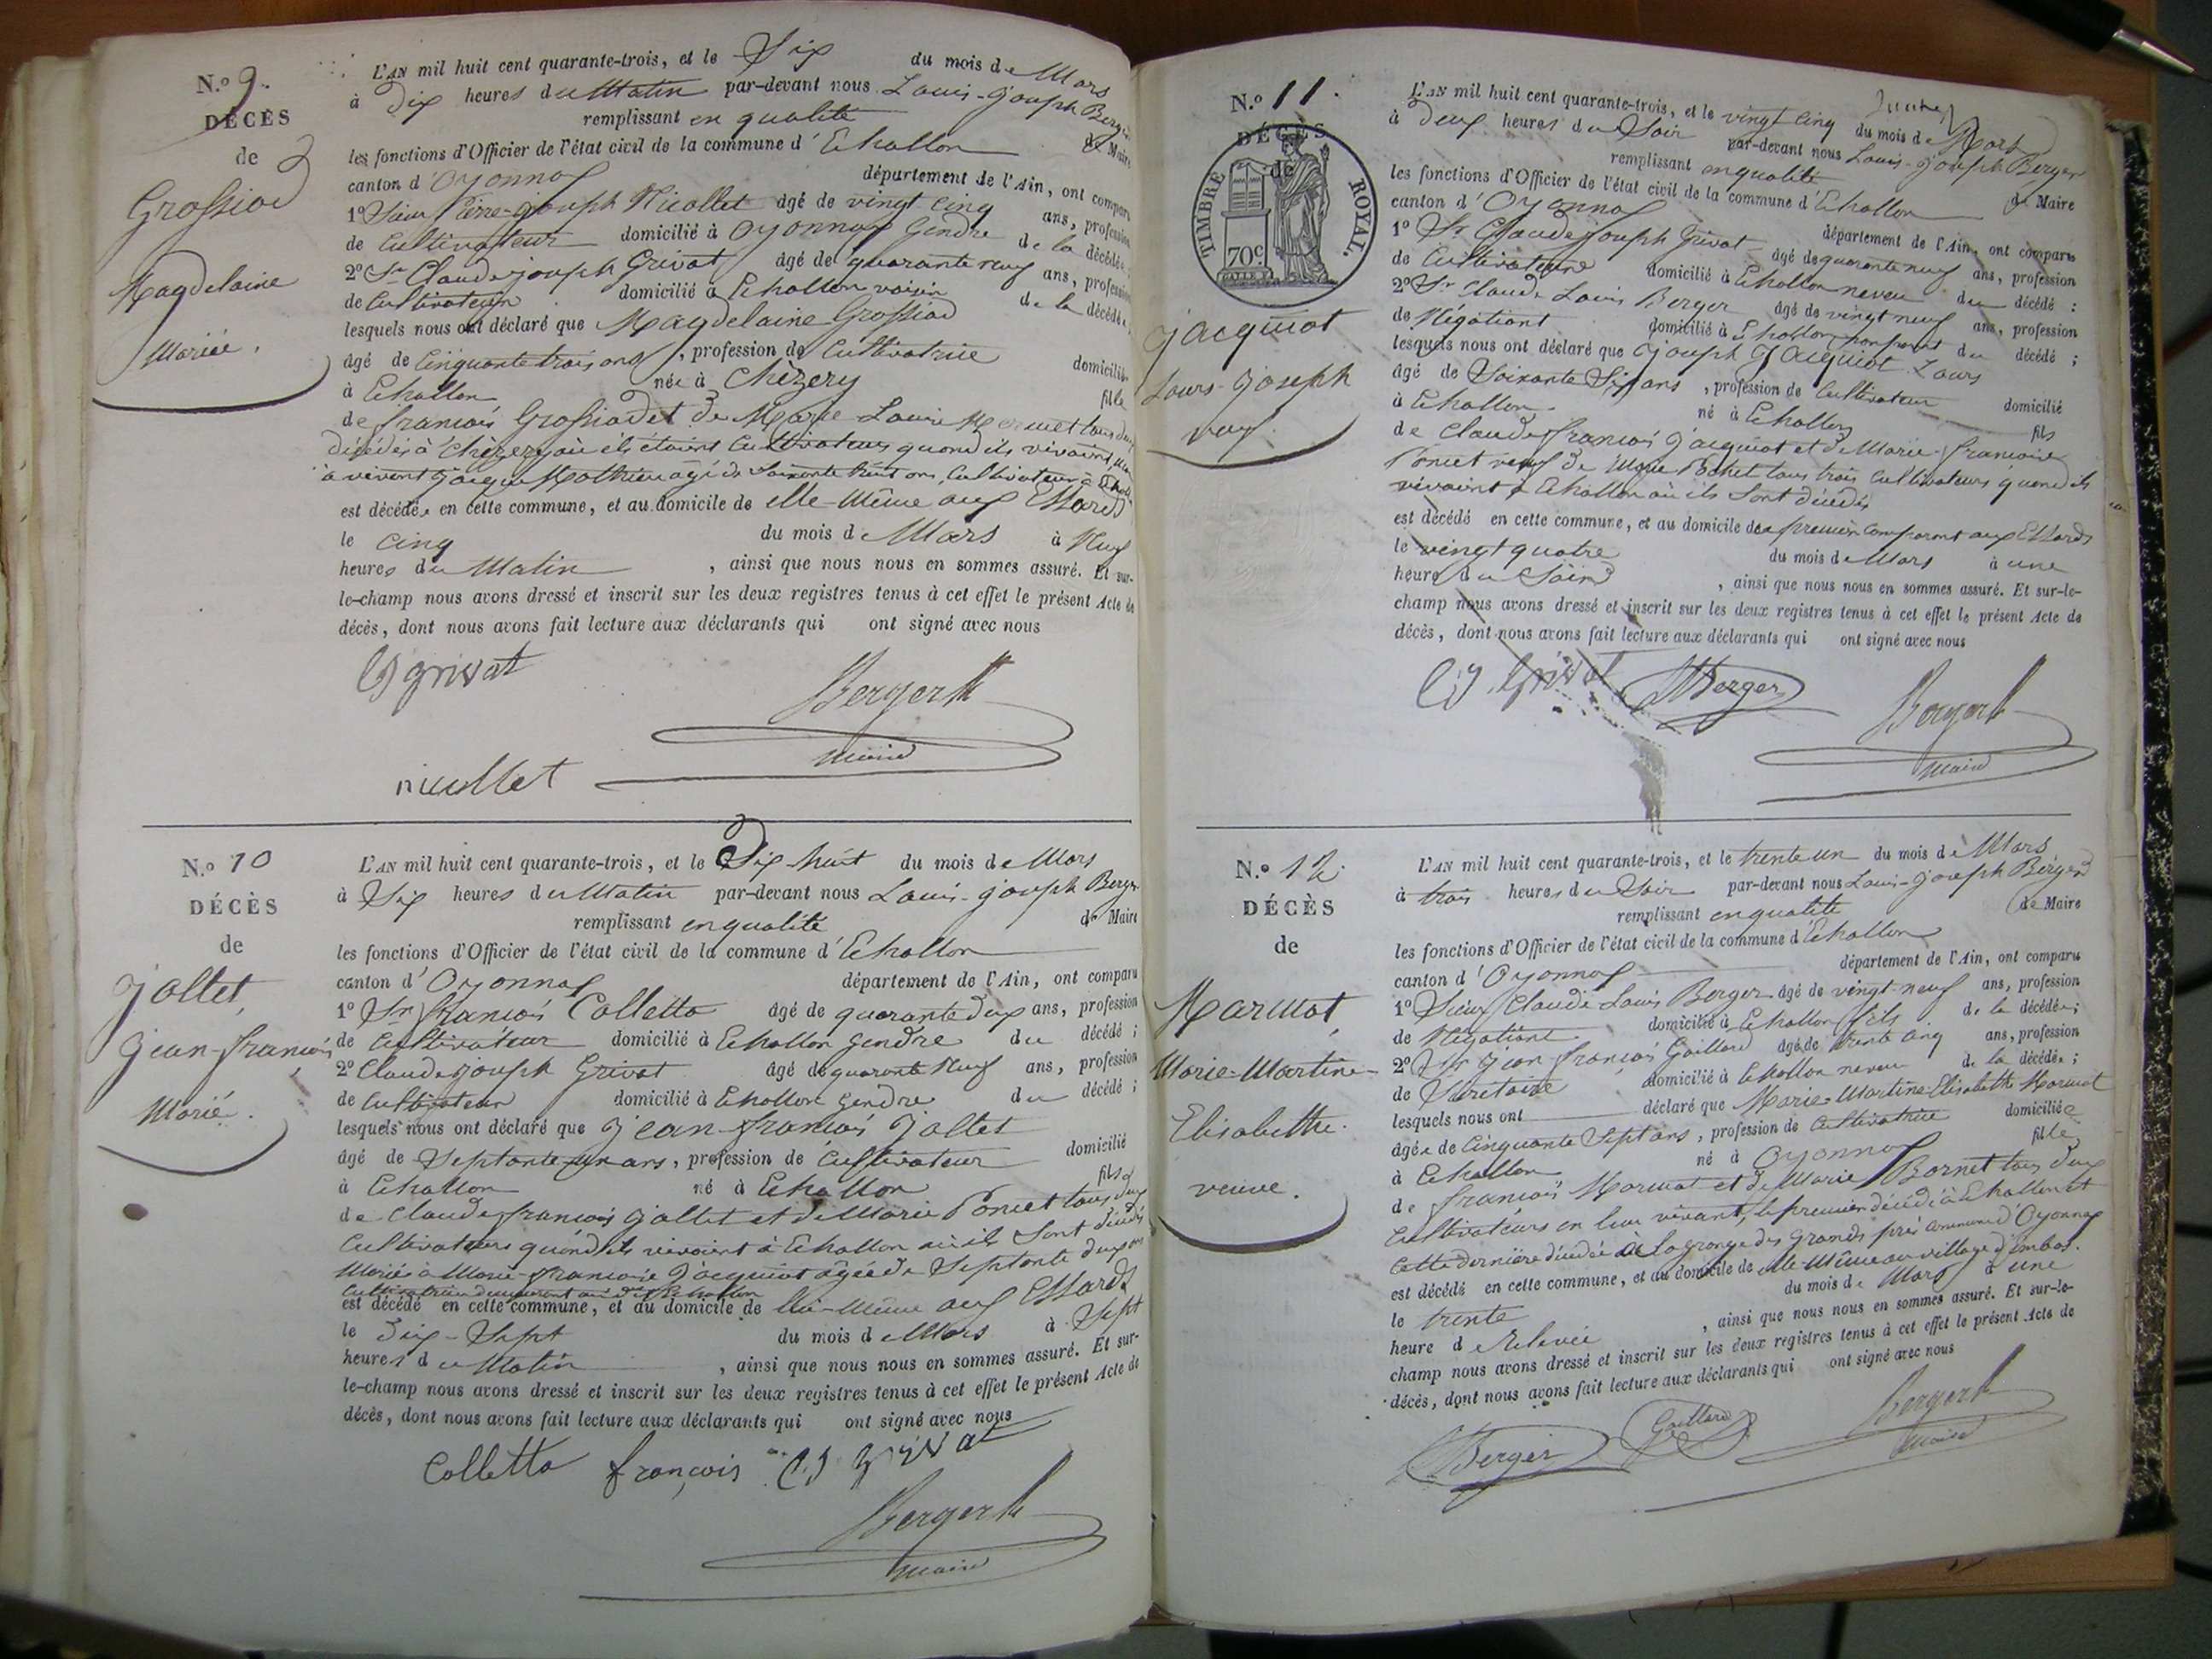 N.o 9.
DÉCÈS
de
Grossiod
Magdelaine
Mariée.
L'AN mil huit cent quarante-trois, et le Six du mois de Mars
à Dix heures du Matin par-devant nous Louis-Joseph Berger
remplissant en qualité de Maire
les fonctions d'Officier de l'état civil de la commune d'Echallon
canton d'Oyonnax département de l'Ain, ont comparu
1o Sieur Pierre-Joseph Nicollet âgé de vingt cinq ans, profession
de Cultivateur domicilié à Oyonnax Gendre de la décédée
2o Sr Claude joseph Grivat âgé de quarante neuf ans, profession
de Cultivateur domicilié à Echallon voisin de la décédée,
lesquels nous ont déclaré que Magdelaine Grossiod
âgé de Cinquante trois ans, profession de Cultivatrice domiciliée
à Echallon née à Chézery fille
de françois Grossiod et de Marie-Louise Mermet tous deux
décédés à Chézery où ils étaient Cultivateurs quand ils vivaient,
à vivant Jacques Mathieu agé de Soixante huit ans, Cultivateur à
est décédée en cette commune, et au domicile de elle-même aux Essards
le Cinq du mois de Mars à Neuf
heures du Matin, ainsi que nous nous en sommes assuré. Et sur-
le-champ nous avons dressé et inscrit sur les deux registres tenus à cet effet le présent Acte de
décès, dont nous avons fait lecture aux déclarants qui ont signé avec nous
CJ grivat
Berger
Maire
nicollet
N.o 10
DÉCÈS
de
Jallet,
Jean-françois
Marié.
L'AN mil huit cent quarante-trois, et le Dix-huit du mois de Mars
à Six heures du Matin par-devant nous Louis-Joseph Berger
remplissant en qualité de Maire
les fonctions d'Officier de l'état civil de la commune d'Echallon
canton d'Oyonnax département de l'Ain, ont comparu
1o Sr françois Colletta âgé de quarante deux ans, profession
de Cultivateur domicilié à Echallon Gendre du décédé ;
2o Claude joseph Grivat âgé de quarante Neuf ans, profession
de Cultivateur domicilié à Echallon Gendre du décédé ;
lesquels nous ont déclaré que Jean-françois Jallet
âgé de Septante un ans, profession de Cultivateur domicilié
à Echallon né à Echallon fils
de Claude françois Jallet et de Marie Poncet tous deux
Cultivateurs quand ils vivaient à Echallon où ils Sont décédés
Mariés à Marie-françoise Jacquiot âgée de Septante deux ans
Cultivatrice demeurant au dit Echallon
est décédé en cette commune, et au domicile de lui-même aux Essards
le Dix-Sept du mois de Mars à Sept
heures du Matin, ainsi que nous nous en sommes assuré. Et sur-
le-champ nous avons dressé et inscrit sur les deux registres tenus à cet effet le présent Acte de
décès, dont nous avons fait lecture aux déclarants qui ont signé avec nous
Colletta françois CJ grivat
Berger
Maire
N.o 11.
DÉCÈS
de
TIMBRE ROYAL.
70c
Jacquiot
Lours-Joseph
veuf.
L'AN mil huit cent quarante-trois, et le vingt cinq du mois de Mars
à Deux heures du Soir par-devant nous Louis-Joseph Berger
remplissant en qualité de Maire
les fonctions d'Officier de l'état civil de la commune d'Echallon
canton d'Oyonnax département de l'Ain, ont comparu
1o Sr Claude joseph Grivat âgé de quarante neuf ans, profession
de Cultivateur domicilié à Echallon neveu du décédé :
2o Sr Claude Louis Berger âgé de vingt neuf ans, profession
de Négotiant domicilié à Echallon, non parent du décédé ;
lesquels nous ont déclaré que Joseph Jacquiot Lours
âgé de Soixante Six ans, profession de Cultivateur domicilié
à Echallon né à Echallon fils
de Claude françois Jacquiot et de Marie-françoise
Poncet veuf de Marie Bochet tous trois Cultivateurs quand ils
vivaient à Echallon où ils Sont décédés
est décédé en cette commune, et au domicile du premier Comparant aux Essards
le vingt quatre du mois de Mars à une
heure du Soir, ainsi que nous nous en sommes assuré. Et sur-le-
champ nous avons dressé et inscrit sur les deux registres tenus à cet effet le présent Acte de
décès, dont nous avons fait lecture aux déclarants qui ont signé avec nous
CJ Grivat Berger
Berger
Maire
N.o 12.
DÉCÈS
de
Marmot,
Marie-Martine-
Elisabetthe.
veuve.
L'AN mil huit cent quarante-trois, et le trente un du mois de Mars
à trois heures du Soir par-devant nous Louis-Joseph Berger
remplissant en qualité de Maire
les fonctions d'Officier de l'état civil de la commune d'Echallon
canton d'Oyonnax département de l'Ain, ont comparu
1o Sieur Claude Louis Berger âgé de vingt-neuf ans, profession
de Négotiant domicilié à Echallon fils de la décédée ;
2o Sr Jean françois Gaillard âgé de trente cinq ans, profession
de domicilié à Echallon neveu de la décédée ;
lesquels nous ont déclaré que Marie-Martine-Elisabetthe Marmot
âgée de Cinquante Sept ans, profession de Cultivatrice domiciliée
à Echallon né à Oyonnax fille
de françois Marmot et de Marie Bornet tous deux
Cultivateurs en leur vivant, le premier décédé à Echallon et
Cette dernière décédée à Lagrange des Grands prés commune d'Oyonnax
est décédé en cette commune, et au domicile de elle-Même au village d'embas.
le trente du mois de Mars à une
heure de Relevée, ainsi que nous nous en sommes assuré. Et sur-le-
champ nous avons dressé et inscrit sur les deux registres tenus à cet effet le présent Acte de
décès, dont nous avons fait lecture aux déclarants qui ont signé avec nous
Berger Gaillard Berger
Maire